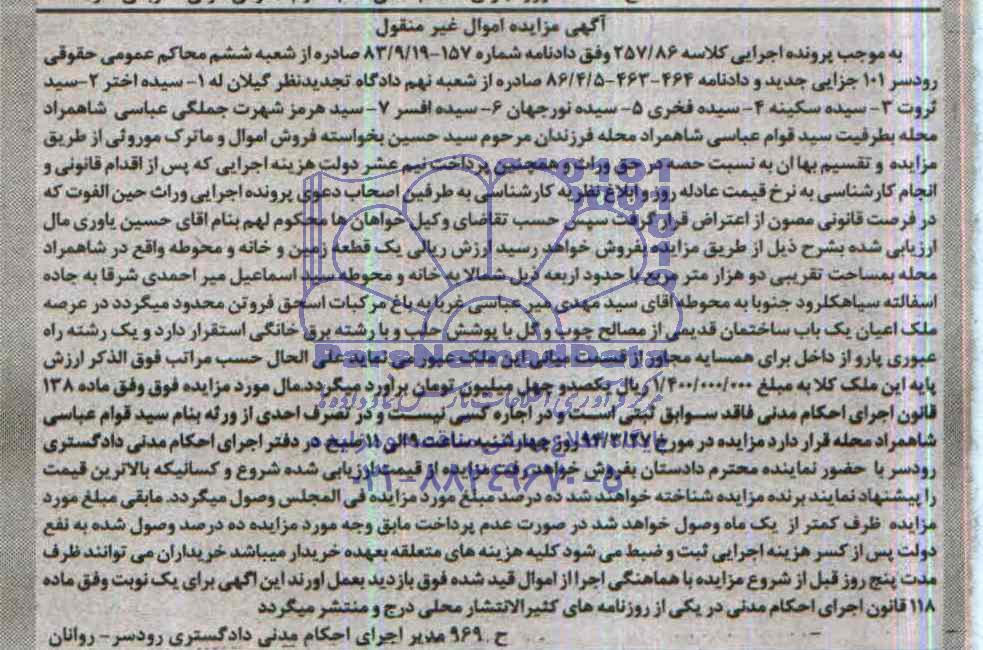 آگهی مزایده اموال غیر منقول
به موجب پرونده اجرایی کلاسه ۲۵۷/۸۶ وفق دادنامه شماره ۱۵۷-۸۳/۹/۱۹ صادره از شعبه ششم محاکم عمومی حقوقی
رودسر ۱۰۱ جزایی جدید و دادنامه ۴۶۴-۴۶۳-۸۶/۴/۵ صادره از شعبه نهم دادگاه تجدیدنظر گیلان له ۱- سیده اختر ۲-سید
ثروت ۳- سیده سکینه ۴- سیده فخری ۵- سیده نورجهان ۶- سیده افسر ۷- سید هرمز شهرت جملگی عباسی شاهمراد
محله بطرفیت سید قوام عباسی شاهمراد محله فرزندان مرحوم سید حسین بخواسته فروش اموال و ماترک موروثی از طریق
مزایده و تقسیم بها ان به نسبت حصه هر حق وراث و همچنین پرداخت نیم عشر دولت هزینه اجرایی که پس از اقدام قانونی و
انجام کارشناسی به نرخ قیمت عادله روز و ابلاغ نظریه کارشناسی به طرفین اصحاب دعوی پرونده اجرایی وراث حین الفوت که
در فرصت قانونی مصون از اعتراض قرار گرفت سپس حسب تقاضای وکیل خواهان ها محکوم لهم بنام اقای حسین یاوری مال
ارزیابی شده بشرح ذیل از طریق مزایده بفروش خواهد رسید ارزش ریالی یک قطعه زمین و خانه و محوطه واقع در شاهمراد
محله بمساحت تقریبی دو هزار متر مربع با حدود اربعه ذیل شمالا به خانه و محوطه سید اسماعیل میر احمدی شرقا به جاده
اسفالته سیاهکلرود جنوبا به محوطه آقای سید مهدی میر عباسی غربا به باغ مرکبات اسحق فروتن محدود میگردد در عرصه
ملک اعیان یک باب ساختمان قدیمی از مصالح چوب و گل با پوشش حلب و با رشته برق خانگی استقرار دارد و یک رشته راه
عبوری پارو از داخل برای همسایه مجاور از قسمت میانی این ملک عبور می نماید علی الحال حسب مراتب فوق الذکر ارزش
پایه این ملک کلا به مبلغ ۱/۴۰۰/۰۰۰/۰۰۰ ریال یکصدو چهل میلیون تومان براورد میگردد.مال مورد مزایده فوق وفق ماده ۱۳۸
قانون اجرای احکام مدنی فاقد سوابق ثبتی است و در اجاره کسی نیست و در تصرف احدی از ورثه بنام سید قوام عباسی
شاهمراد محله قرار دارد مزایده در مورخ ۹۴/۳/۲۷ روز چهارشنبه ساعت ۹ الی ۱۱ صبح در دفتر اجرای احکام مدنی دادگستری
رودسر با حضور نماینده محترم دادستان بفروش خواهد رفت مزایده از قیمت ارزیابی شده شروع و کسانیکه بالاترین قیمت
را پیشنهاد نمایند برنده مزایده شناخته خواهند شد ده درصد مبلغ مورد مزایده فی المجلس وصول میگردد. مابقی مبلغ مورد
مزایده ظرف کمتر از یک ماه وصول خواهد شد در صورت عدم پرداخت مابق وجه مورد مزایده ده درصد وصول شده به نفع
دولت پس از کسر هزینه اجرایی ثبت و ضبط می شود کلیه هزینه های متعلقه بعهده خریدار میباشد خریداران می توانند ظرف
مدت پنج روز قبل از شروع مزایده با هماهنگی اجرا از اموال قید شده فوق بازدید بعمل اورند این اگهی برای یک نوبت وفق ماده
۱۱۸ قانون اجرای احکام مدنی در یکی از روزنامه های کثیرالانتشار محلی درج و منتشر میگردد
ح ۹۶۹ مدیر اجرای احکام مدنی دادگستری رودسر- روانان
ParsNamadData
۰۲۱-۸۸۳۴۹۶۷۰-۵